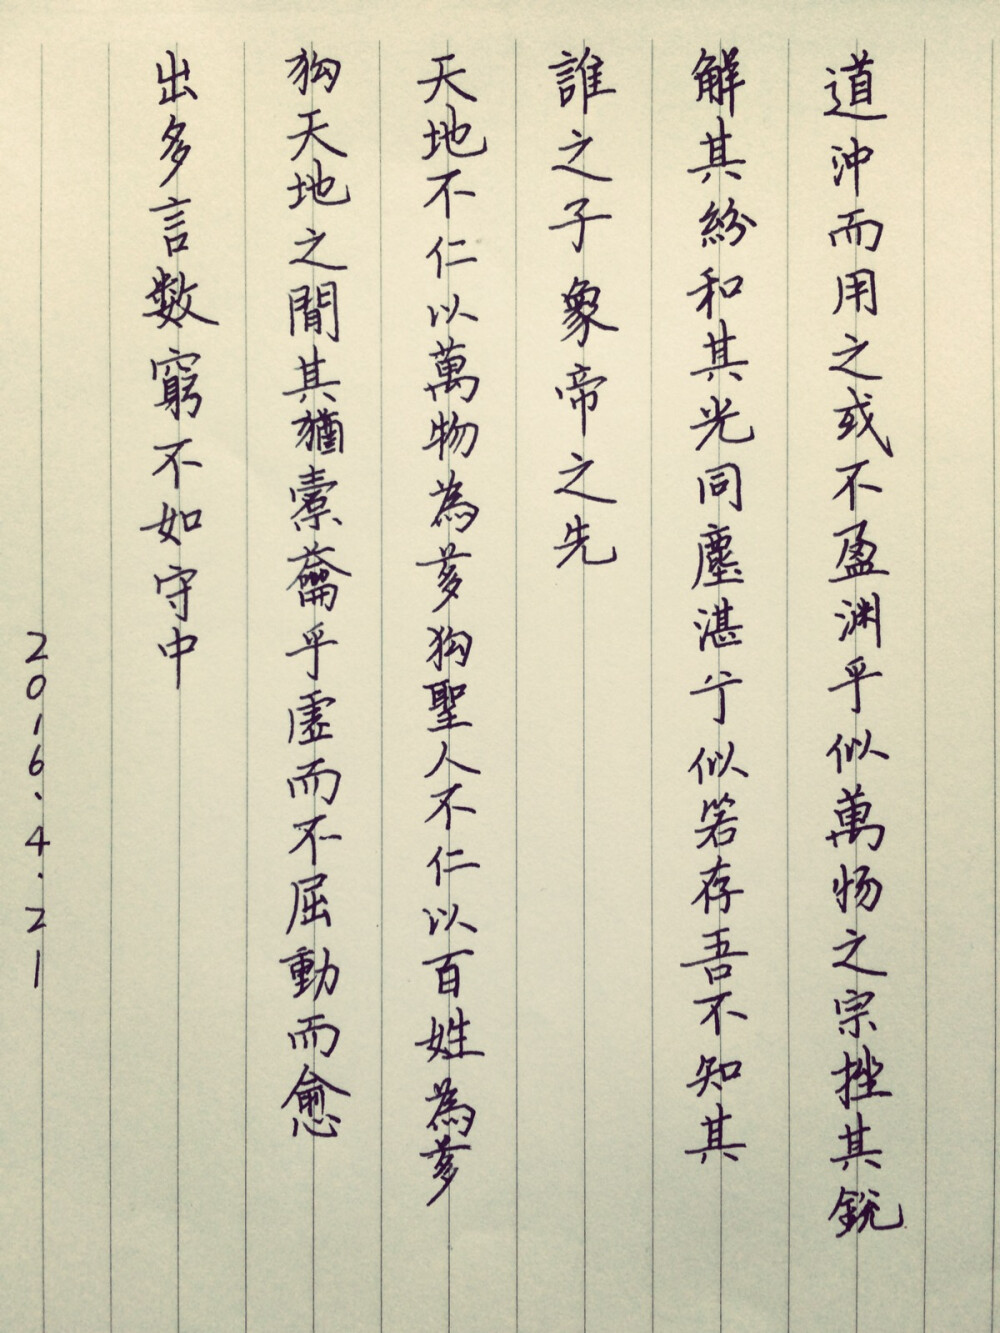 道沖而用之或不盈渊乎似萬物之宗挫其銳
解其紛和其光同塵湛兮似若存吾不知其
誰之子象帝之先
天地不仁以萬物為芻狗聖人不仁以百姓為芻
狗天地之間其猶橐籥乎虛而不屈動而愈
出多言數窮不如守中
2016.4.21